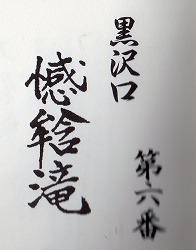 黒沢口
第六番
憾𤚥滝